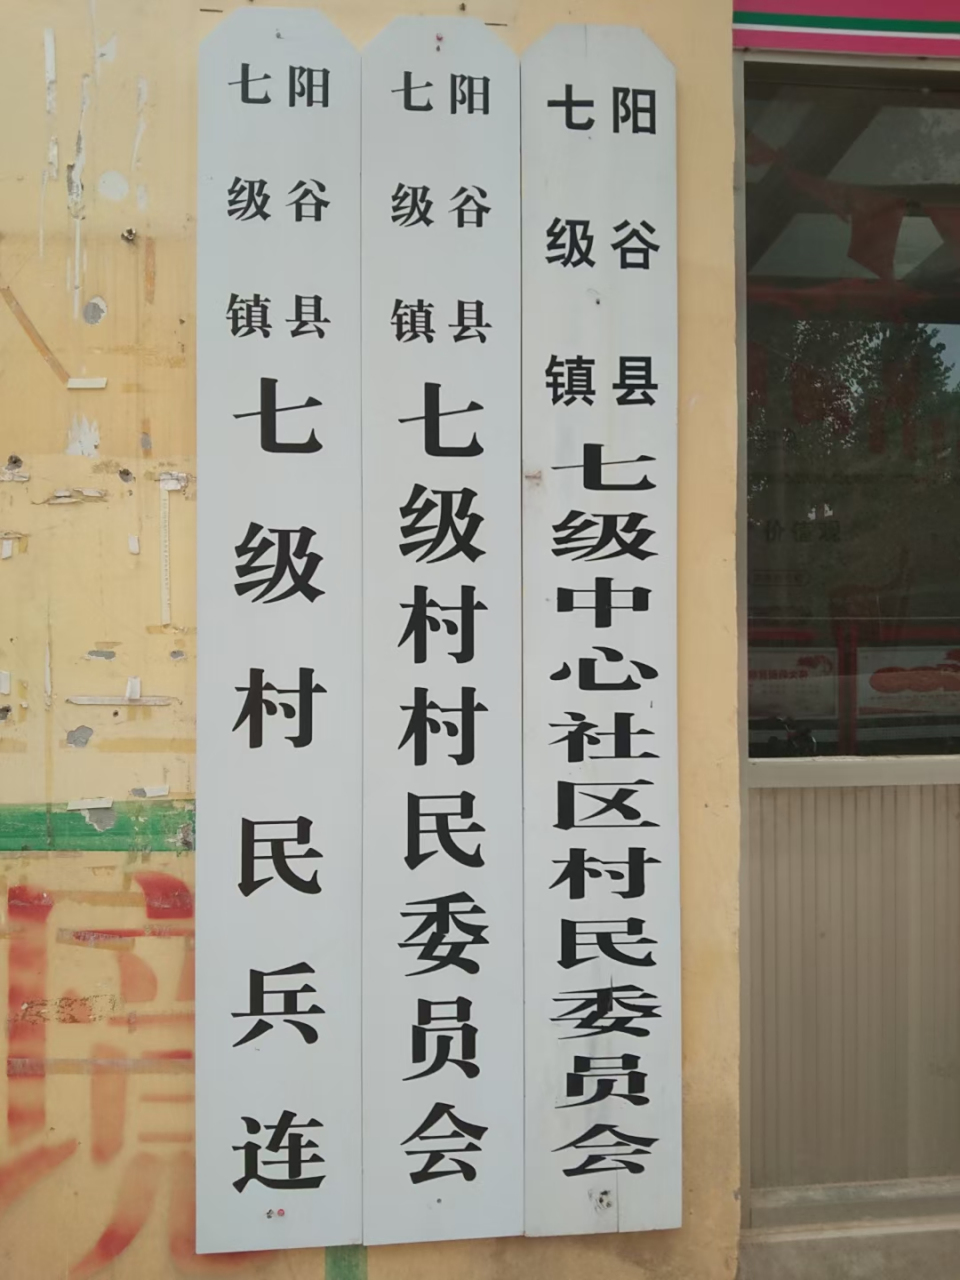 阳谷县
七级镇
七级中心社区村民委员会
阳谷县
七级镇
七级村村民委员会
阳谷县
七级镇
七级村民兵连
价值观